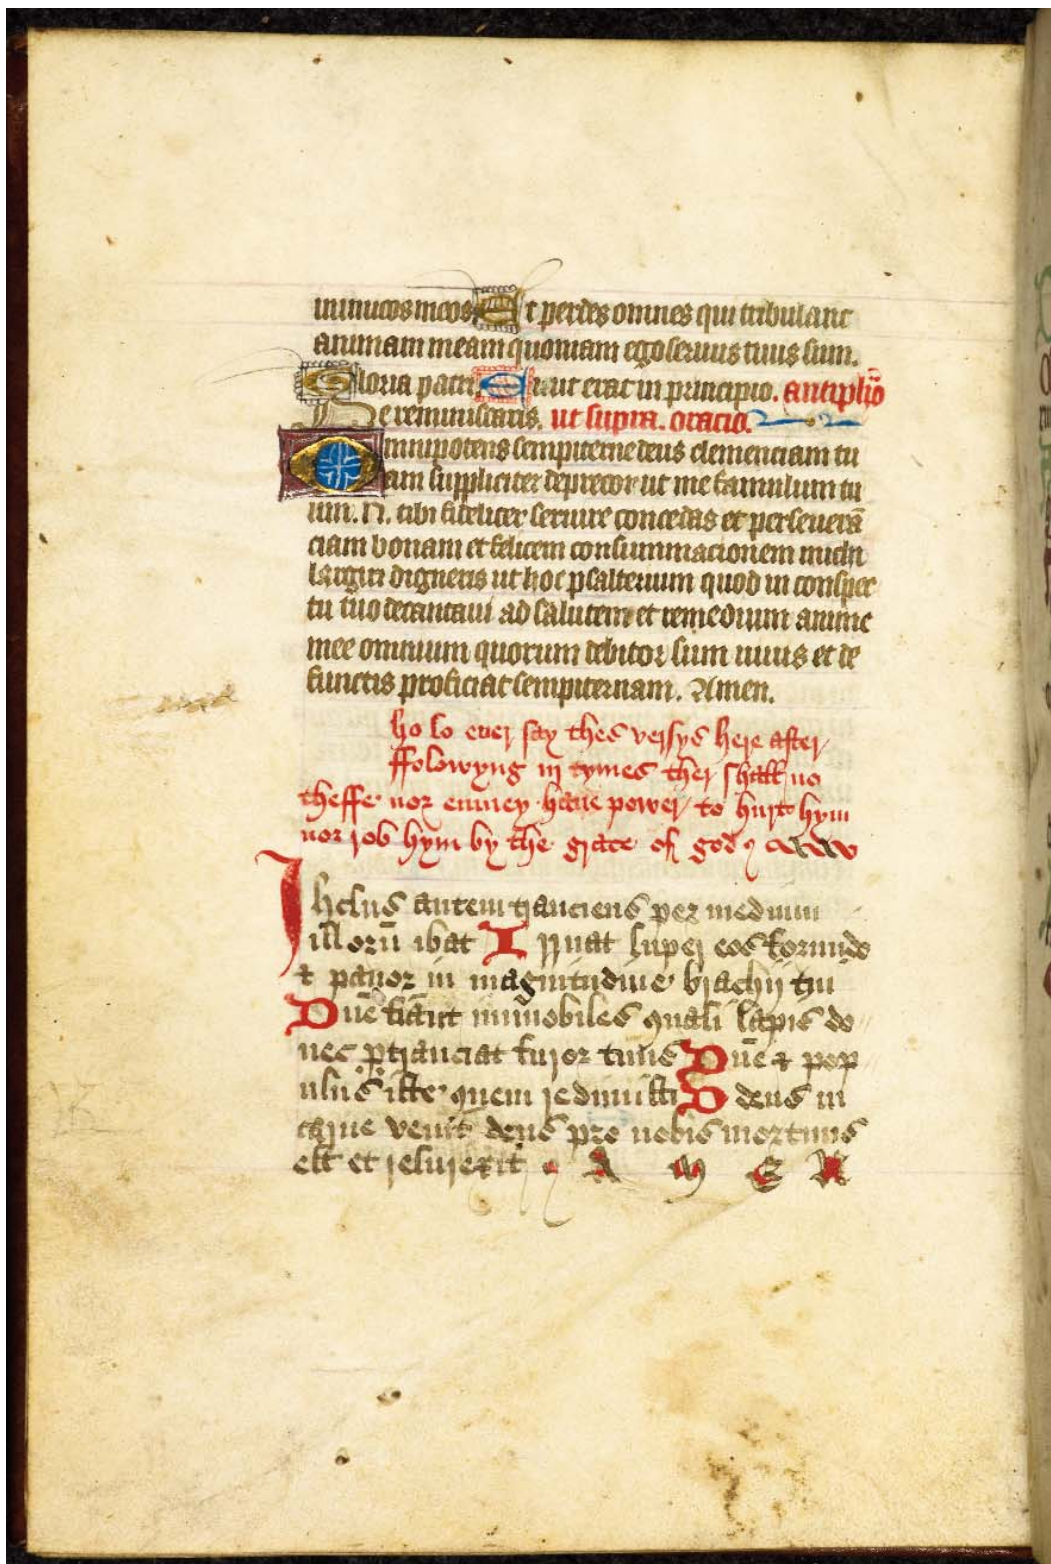 inimicos meos. Et perdes omnes qui tribulant
animam meam quoniam ego servus tuus sum.
Gloria patri. Sicut erat in principio. antiphõ
Ne reminiscaris. ut supra. oracio.
Omnipotens sempiterne deus clemenciam tu
am suppliciter deprecor ut me famulum tu
um. N. tibi fideliter servire concedas et perseverã
ciam bonam et felicem consummacionem michi
largiri digneris ut hoc psalterium quod in conspec
tu tuo decantavi ad salutem et remedium anime
mee omnium quorum debitor sum vivis et de
functis proficiat sempiternam. Amen.
ho so ever say thes versys here after
ffolowyng in tymes ther shall no
theffe nor enmey have power to hurt hym
nor rob hym by the grace of god
Ihesus autem tranciens per medium
illorũ ibat Irruat super eos formido
& pavor in magnitudine brachij tui
Dñe fiant immobiles quasi lapis do
nec ptranciat furor tuus Dñe & pop
ulus iste quem redimisti deus in
carne venit deus pro nobis mortuus
est et resurexit A M E N